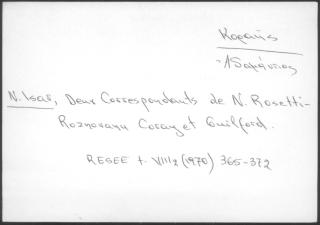 Κοραής
Ἀδαμάντιος
N. Isar, Deux Correspondants de N. Rosetti-
Roznovanu Coray et Guilford.
RESEE t. VIII/2 (1970) 365-372